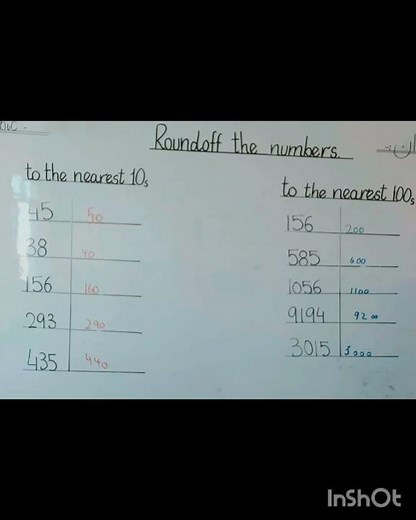 Roundoff the numbers.
to the nearest 10s
45 50
38 40
156 160
293 290
435 440
to the nearest 100s
156 200
585 600
1056 1100
9194 9200
3015 3000
InShOt